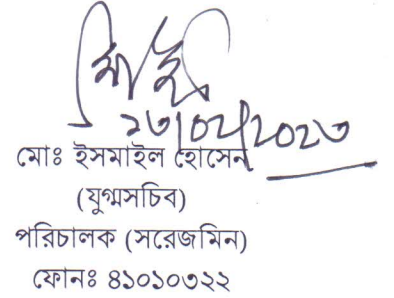 ১৩/০২/২০২৩
মোঃ ইসমাইল হোসেন
(যুগ্মসচিব)
পরিচালক (সরেজমিন)
ফোনঃ ৪১০১০৩২২